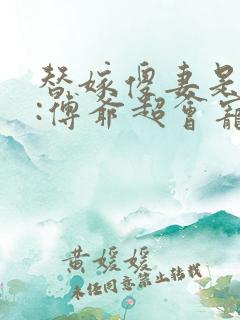 替嫁傻妻是
:傅爷超会宠
黄媛媛
未经同意禁止转载